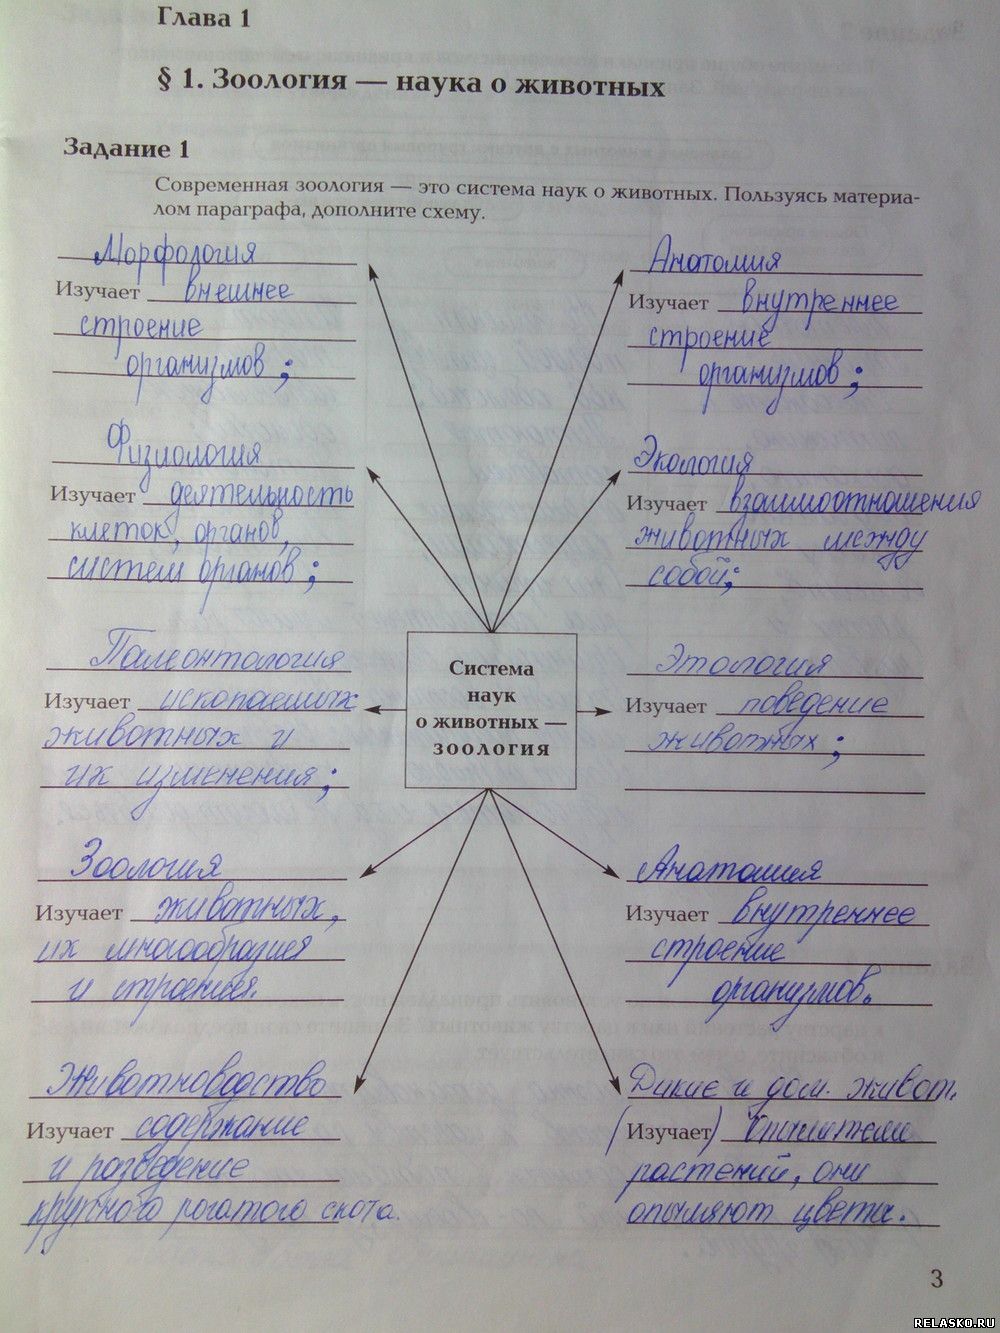 Глава 1
§ 1. Зоология — наука о животных
Задание 1
Современная зоология — это система наук о животных. Пользуясь материа-
лом параграфа, дополните схему.
Морфология
Изучает внешнее
строение
организмов;
Анатомия
Изучает внутреннее
строение
организмов;
Физиология
Изучает деятельность
клеток, органов,
систем органов;
Экология
Изучает взаимоотношения
животных между
собой;
Палеонтология
Изучает ископаемых
животных и
их изменения;
Система
наук
о животных —
зоология
Этология
Изучает поведение
животных;
Зоология
Изучает животных,
их многообразия
и строения.
Анатомия
Изучает внутреннее
строение
организмов.
Животноводство
Изучает содержание
и розведение
крупного рогатого скота.
Дикие и дом. живот.
(Изучает)
растений, они
опыляют цветы.
3
RELASKO.RU